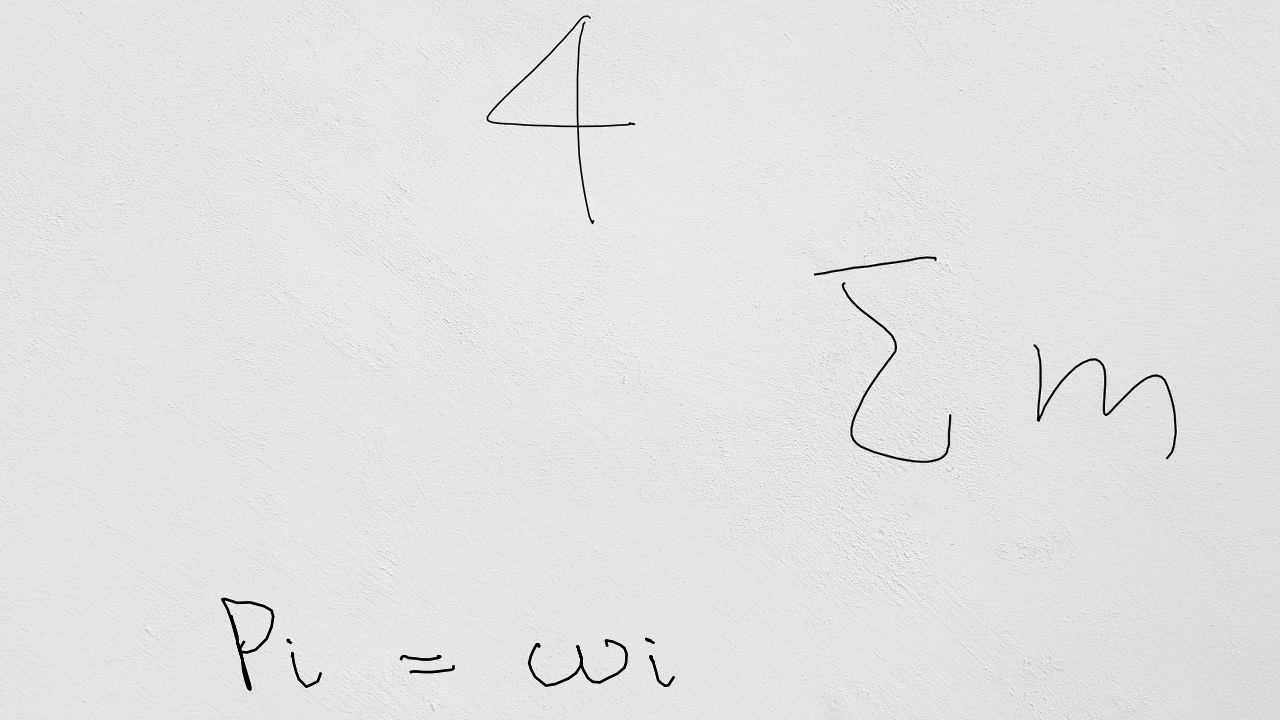 4
∑ m
Pi = ωi